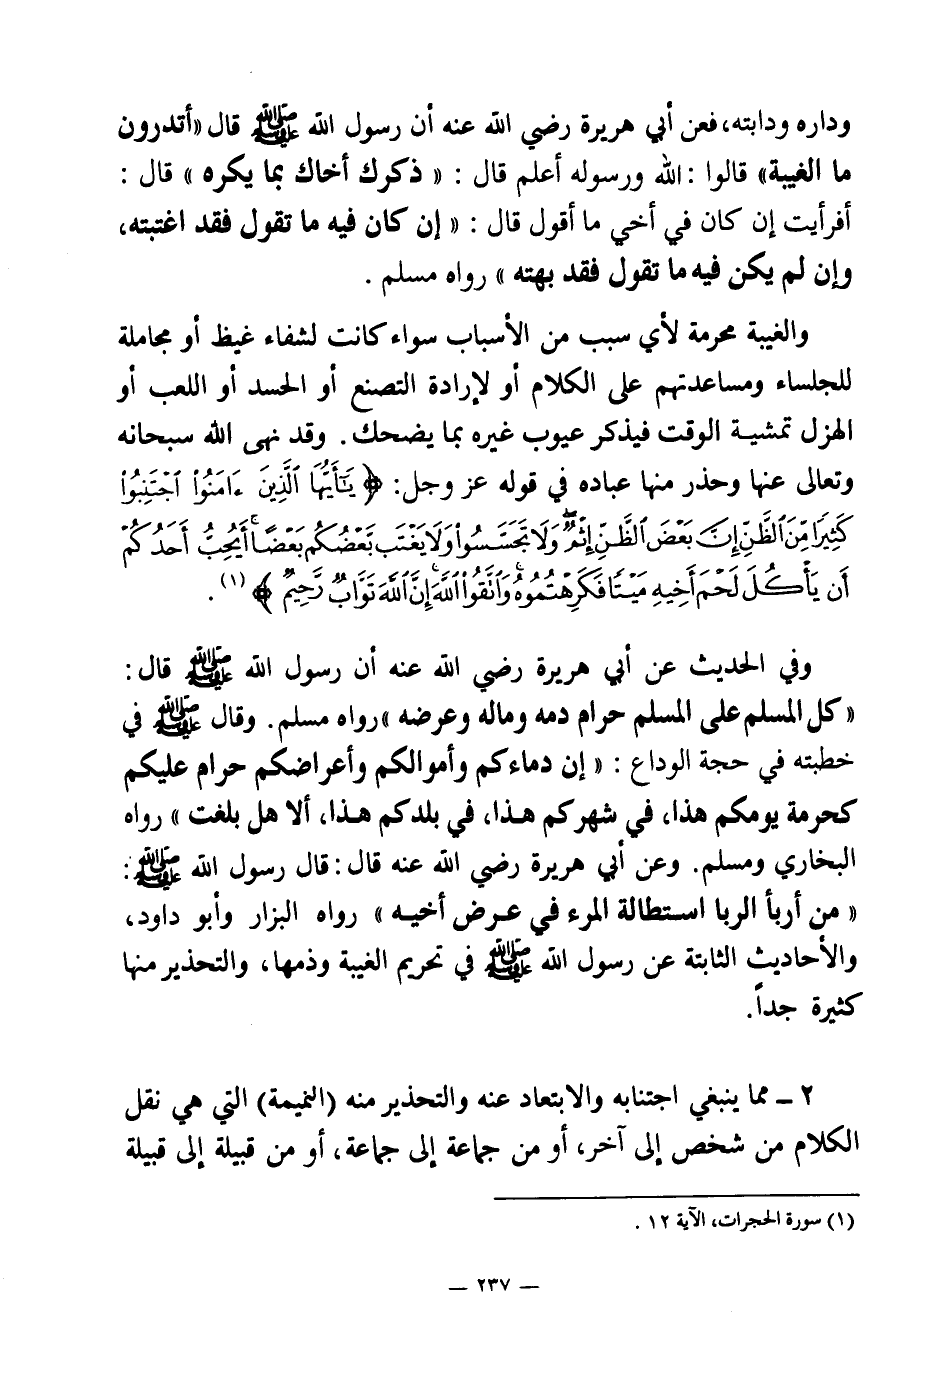 وداره ودابته، فعن أبي هريرة رضي الله عنه أن رسول الله ﷺ قال «أتدرون
ما الغيبة» قالوا : الله ورسوله أعلم قال : « ذكرك أخاك بما يكره » قال :
أفرأيت إن كان في أخي ما أقول قال : « إن كان فيه ما تقول فقد اغتبته،
وإن لم يكن فيه ما تقول فقد بهته » رواه مسلم .
والغيبة محرمة لأي سبب من الأسباب سواء كانت لشفاء غيظ أو مجاملة
للجلساء ومساعدتهم على الكلام أو لإرادة التصنع أو الحسد أو اللعب أو
الهزل تمشية الوقت فيذكر عيوب غيره بما يضحك. وقد نهى الله سبحانه
وتعالى عنها وحذر منها عباده في قوله عز وجل: ﴿ يَٰٓأَيُّهَا ٱلَّذِينَ ءَامَنُوا۟ ٱجْتَنِبُوا۟
كَثِيرًا مِّنَ ٱلظَّنِّ إِنَّ بَعْضَ ٱلظَّنِّ إِثْمٌ ۖ وَلَا تَجَسَّسُوا۟ وَلَا يَغْتَب بَّعْضُكُم بَعْضًا ۚ أَيُحِبُّ أَحَدُكُمْ
أَن يَأْكُلَ لَحْمَ أَخِيهِ مَيْتًا فَكَرِهْتُمُوهُ ۚ وَٱتَّقُوا۟ ٱللَّهَ ۚ إِنَّ ٱللَّهَ تَوَّابٌ رَّحِيمٌ ﴾ (١) .
وفي الحديث عن أبي هريرة رضي الله عنه أن رسول الله ﷺ قال :
« كل المسلم على المسلم حرام دمه وماله وعرضه » رواه مسلم. وقال ﷺ في
خطبته في حجة الوداع : « إن دماءكم وأموالكم وأعراضكم حرام عليكم
كحرمة يومكم هذا، في شهركم هذا، في بلدكم هذا، ألا هل بلغت » رواه
البخاري ومسلم. وعن أبي هريرة رضي الله عنه قال : قال رسول الله ﷺ :
« من أربأ الربا استطالة المرء في عرض أخيه » رواه البزار وأبو داود،
والأحاديث الثابتة عن رسول الله ﷺ في تحريم الغيبة وذمها، والتحذير منها
كثيرة جداً.
٢ ـ مما ينبغي اجتنابه والابتعاد عنه والتحذير منه (النميمة) التي هي نقل
الكلام من شخص إلى آخر، أو من جماعة إلى جماعة، أو من قبيلة إلى قبيلة
(١) سورة الحجرات، الآية ١٢ .
— ٢٣٧ —